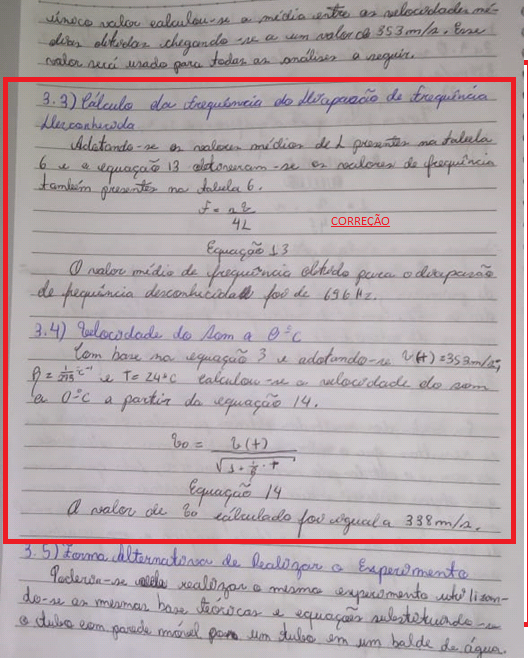 único valor calculou-se a média entre as velocidades mé-
dias obtidas chegando-se a um valor de 353 m/s. Esse
valor será usado para todas as análises a seguir.
3.3) Cálculo da frequência do Diapasão de Frequência
Desconhecida
Adotando-se os valores médios de L presentes na tabela
6 e a equação 13 obtiveram-se os valores de frequência
também presentes na tabela 6.
f = nv
4L
CORREÇÃO
Equação 13
O valor médio de frequência obtido para o diapasão
de frequência desconhecida foi de 696 Hz.
3.4) Velocidade do Som a 0°C
Com base na equação 3 e adotando-se V(t) = 353 m/s,
= 1/273 °C⁻¹ e T = 24°C calculou-se a velocidade do som
a 0°C a partir da equação 14.
v₀ = v(t)
Equação 14
O valor de v₀ calculado foi igual a 338 m/s.
3.5) Forma Alternativa de Realizar o Experimento
Poderia-se realizar o mesmo experimento utilizan-
do-se as mesmas base teóricas e equações substituindo-se
o tubo com parede móvel por um tubo em um balde de água.